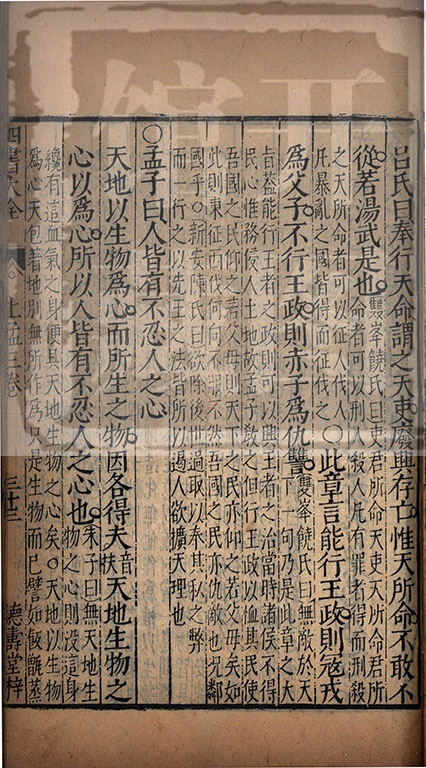 呂氏曰奉行天命謂之天吏廢興存亡惟天所命不敢不
從若湯武是也雙峯饒氏曰吏君所命天吏天所命君所
命者可以刑人殺人凡有罪者得而刑殺
之天所命者可以征人伐人
凡暴亂之國皆得而征伐之○此章言能行王政則寇戎
為父子不行王政則赤子為仇讐雙峯饒氏曰無敵於天
下一句乃是此章之大
旨蓋能行王者之政則可以興王者之治當時諸侯不得
民心惟務侵人土地故孟子教之但行王政以恤其民使
吾國之民仰之若父母則天下之民亦仰之若父母矣如
此則東征西伐何向不服不然吾國之民亦仇敵也況鄰
國乎○新安陳氏曰欲除後世過取以奉其私之弊
而一行之以先王之法皆所以遏人欲擴天理也
○孟子曰人皆有不忍人之心
天地以生物為心而所生之物因各得夫音扶天地生物之
心以為心所以人皆有不忍人之心也朱子曰無天地生
物之心則沒這身
纔有這血氣之身便具天地生物之心矣○天地以生物
為心天包著地別無所作為只是生物而已譬如飯甑蒸
四書大全
上孟三卷
三十三
德壽堂梓